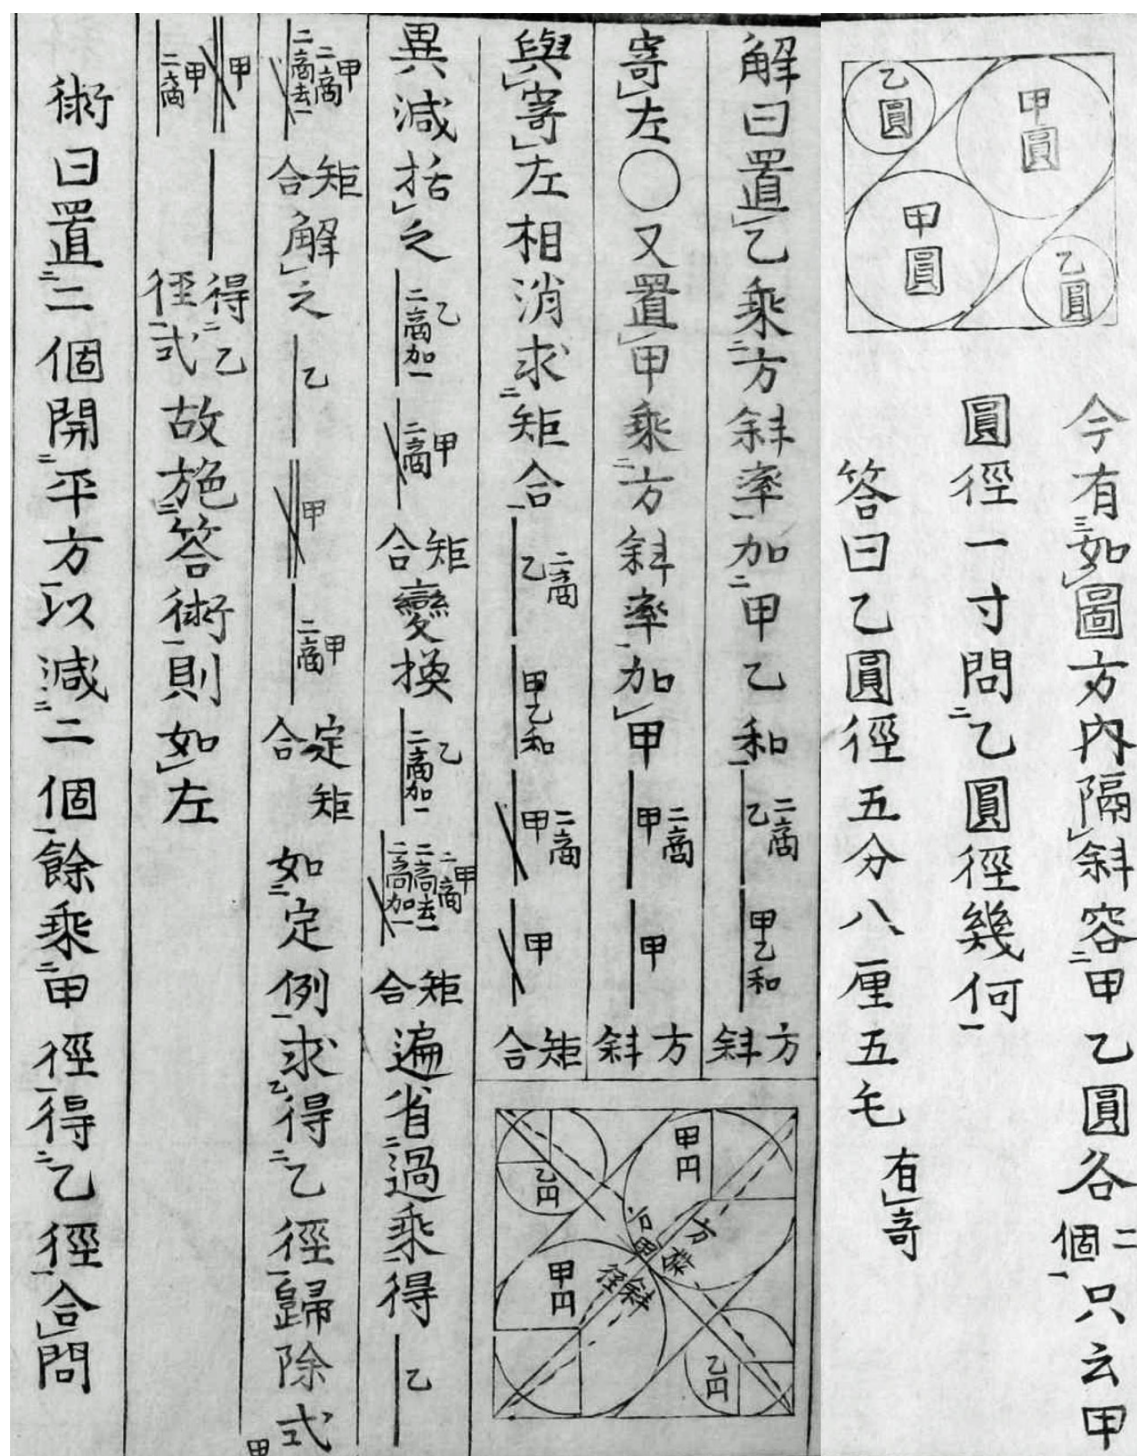 甲圓
乙圓
甲圓
乙圓
今有如圖方内隔斜容甲乙圓各二個只云甲
圓径一寸問乙圓径幾何
答曰乙圓径五分八厘五毛有奇
解曰置乙乘方斜率加甲乙和 乙二商 甲乙和 方斜
寄左〇又置甲乘方斜率加甲 甲二商 甲 方斜
與寄左相消求矩合 乙二商 甲乙和 甲二商 甲 矩合
甲円
乙円
方斜
甲円
斜径
乙円
異減括之 乙二商加一 甲二商 矩合變換 乙二商加一 甲二商二商去一二商加一 矩合遍省過乘得 乙
甲二商二商去一 矩合解之 乙 甲 甲二商 定矩合如定例求得乙径歸除式
甲 甲二商 得乙径式故施答術則如左
術曰置二個開平方以減二個餘乘甲径得乙径合問